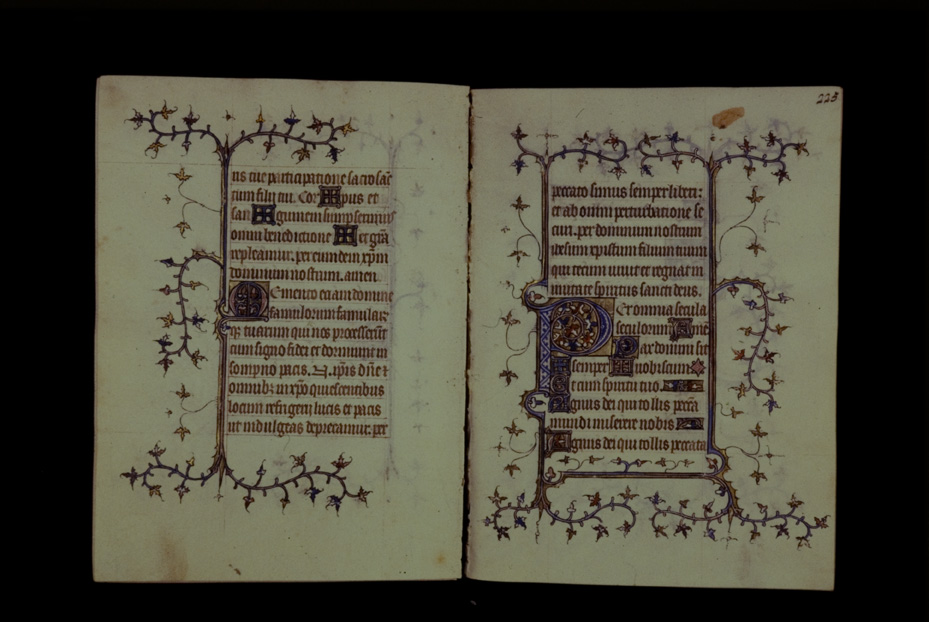 us tue participatione sacrosāc
tum filii tui. Cor✠pus et
san✠guinem sumpserimus
omni benedictione ✠ et grā
repleamur. per eundem xp̄m
dominum nostrum. amen.
Memento etiam domine
famulorum famular
tuarum qui nos precesserūt
cum signo fidei et dormiunt in
sompno pacis. N. ip̄is dn̄e et
omnib; in xp̄o quiescentibus
locum refrigerii lucis et pacis
ut indulgeas deprecamur. per
223
peccato simus semper liberi:
et ab omni perturbatione se
curi. per dominum nostrum
ihesum xpistum filium tuum
qui tecum vivit et regnat in
unitate spiritus sancti deus.
Per omnia secula
seculorum Amē
Pax domini sit
semper vobiscum
Et cum spiritu tuo
Agnus dei qui tollis peccā
mundi miserere nobis
Agnus dei qui tollis peccata